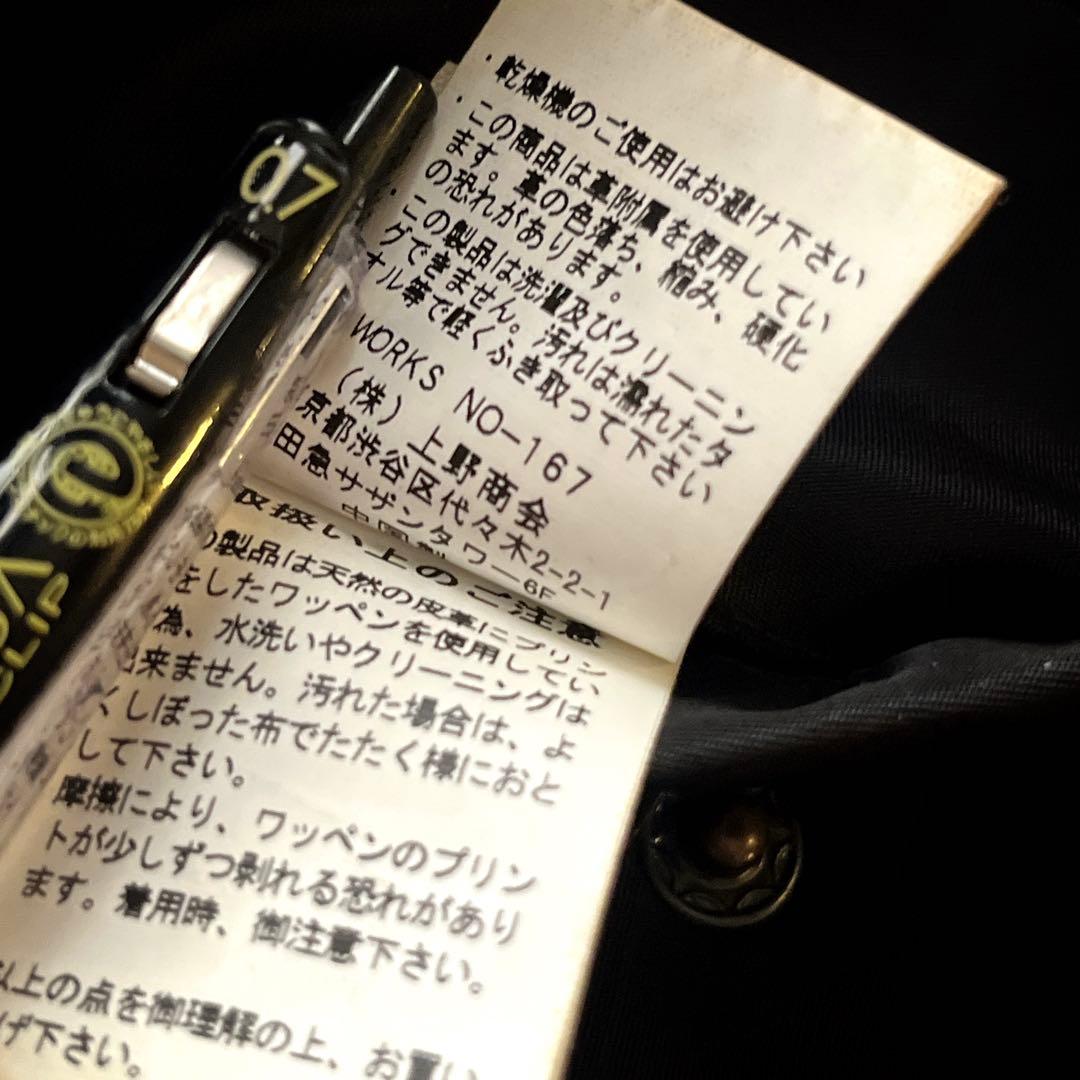 ・乾燥機のご使用はお避け下さい
・この商品は革附属を使用してい
ます。革の色落ち、縮み、硬化
の恐れがあります。
・この製品は洗濯及びクリーニン
グできません。汚れは濡れたタ
オル等で軽くふき取って下さい
WORKS NO-167
(株)上野商会
京都渋谷区代々木2-2-1
田急サザンタワー6F
中国製
取扱い上のご注意
の製品は天然の皮革にプリン
をしたワッペンを使用してい
為、水洗いやクリーニングは
出来ません。汚れた場合は、よ
くしぼった布でたたく様におと
して下さい。
摩擦により、ワッペンのプリン
トが少しずつ剥れる恐れがあり
ます。着用時、御注意下さい。
以上の点を御理解の上、お買い
げ下さい。
0.7
e